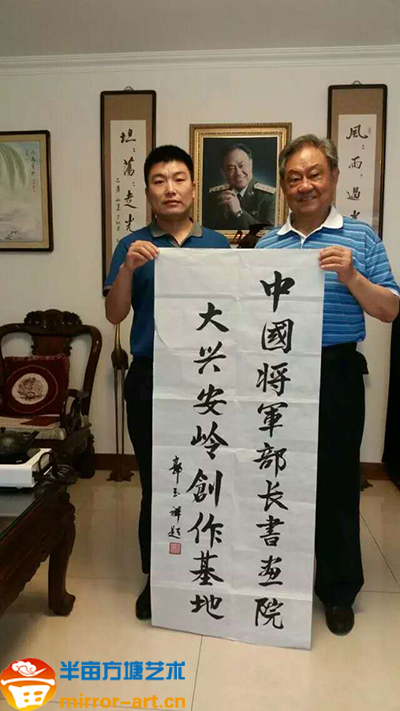 風雨過
坦荡走光
中國将軍部长書画院
大兴安岭創作基地
郭玉祥题
半亩方塘艺术
mirror-art.cn